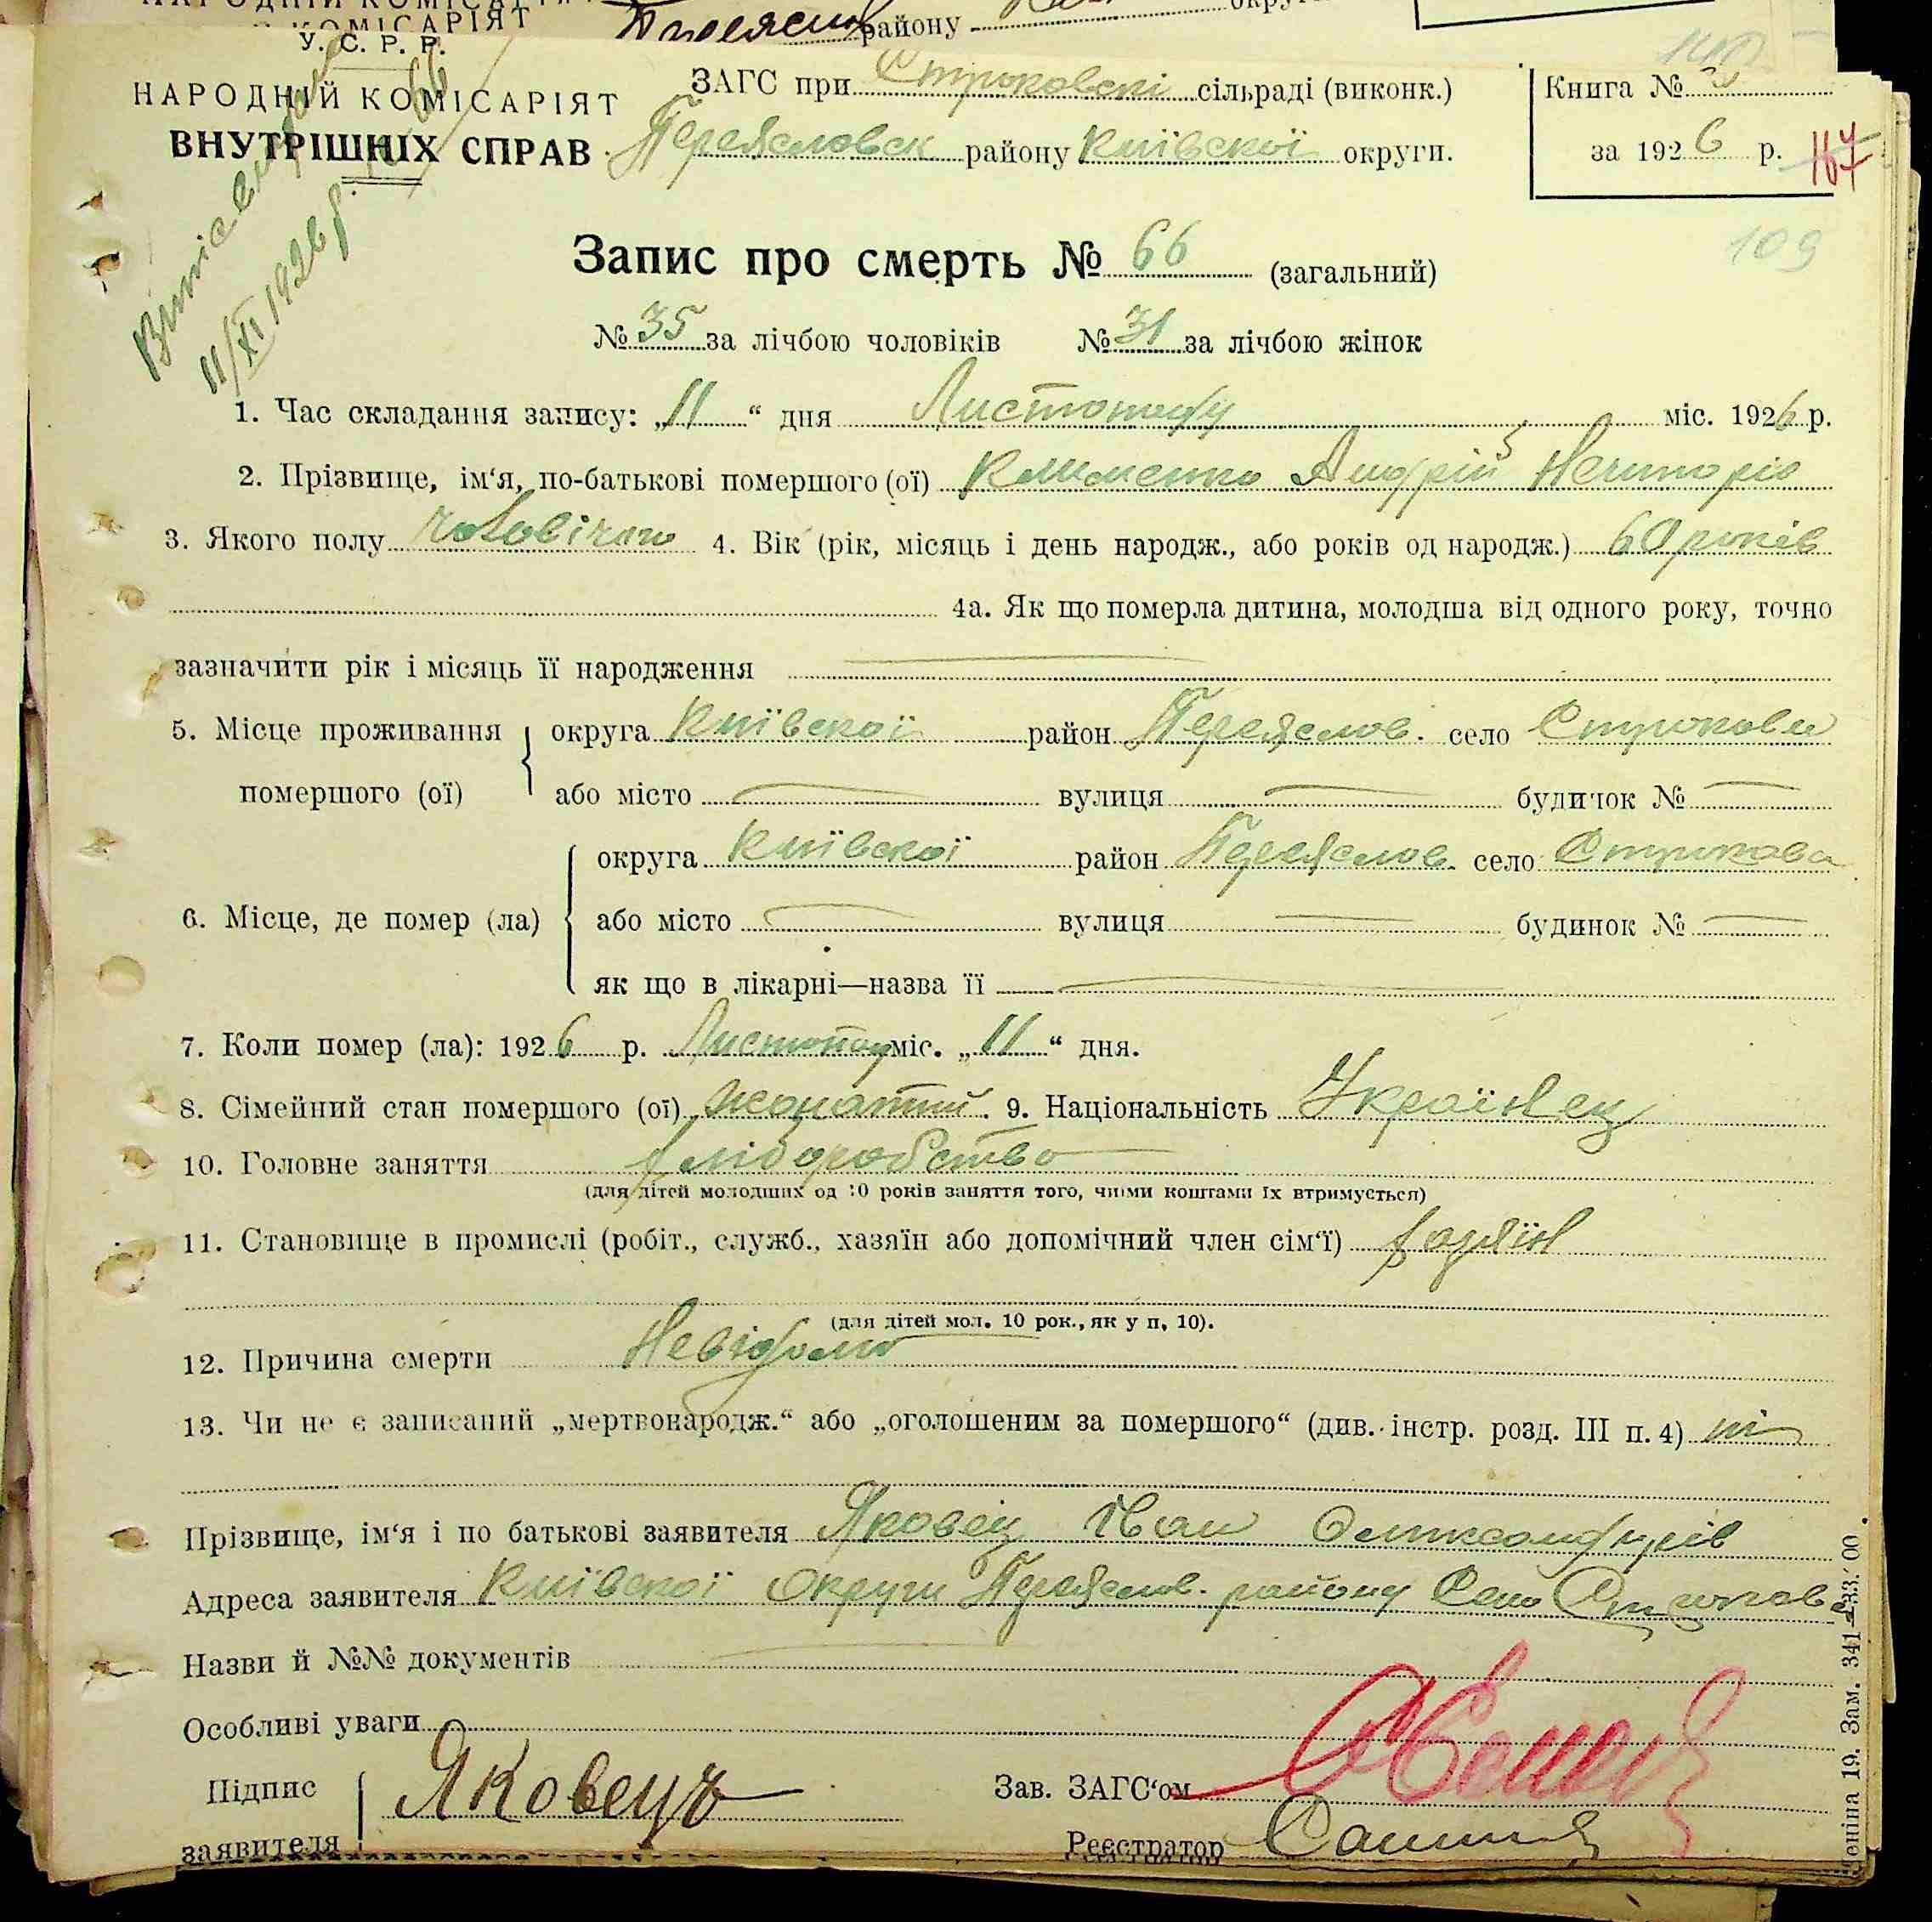 У. С. Р. Р.
НАРОДНІЙ КОМІСАРІЯТ
ВНУТРІШНІХ СПРАВ
району
ЗАГС при Строковскі сільраді (виконк.)
Переяславск району Київскої округи.
Книга №
за 1926 р. 167
109
11/XI 1926 р.
Запис про смерть № 66 (загальний)
№ 35 за лічбою чоловіків № 31 за лічбою жінок
1. Час складання запису: „11“ дня Листопаду міс. 1926 р.
2. Прізвище, ім'я, по-батькові помершого (ої) Клименко Андрій Нечипорів
3. Якого полу чоловічого 4. Вік (рік, місяць і день народж., або років од народж.) 60 років
4а. Як що померла дитина, молодша від одного року, точно
зазначити рік і місяць її народження
5. Місце проживання помершого (ої) округа Київскої район Переяслов. село Строкова
або місто вулиця будинок №
6. Місце, де помер (ла) округа Київскої район Переяслов. село Строкова
або місто вулиця будинок №
як що в лікарні—назва її
7. Коли помер (ла): 1926 р. Листопаду міс. „11“ дня.
8. Сімейний стан помершого (ої) жонатий. 9. Національність Українец
10. Головне заняття хліборобство
(для дітей молодших од 10 років заняття того, чиїми коштами їх втримується)
11. Становище в промислі (робіт., служб., хазяїн або допомічний член сім'ї) хазяїн
(для дітей мол. 10 рок., як у п. 10).
12. Причина смерти Невідомо
13. Чи не є записаний „мертвонародж.“ або „оголошеним за помершого“ (див. інстр. розд. III п. 4) ні
Прізвище, ім'я і по батькові заявителя Яковец Іван Олександрів
Адреса заявителя Київскої округи Переяслов. району Село Строкова
Назви й №№ документів
Особливі уваги
Підпис заявителя Яковецъ
Зав. ЗАГС'ом
Реєстратор
19. Зам. 341—33.